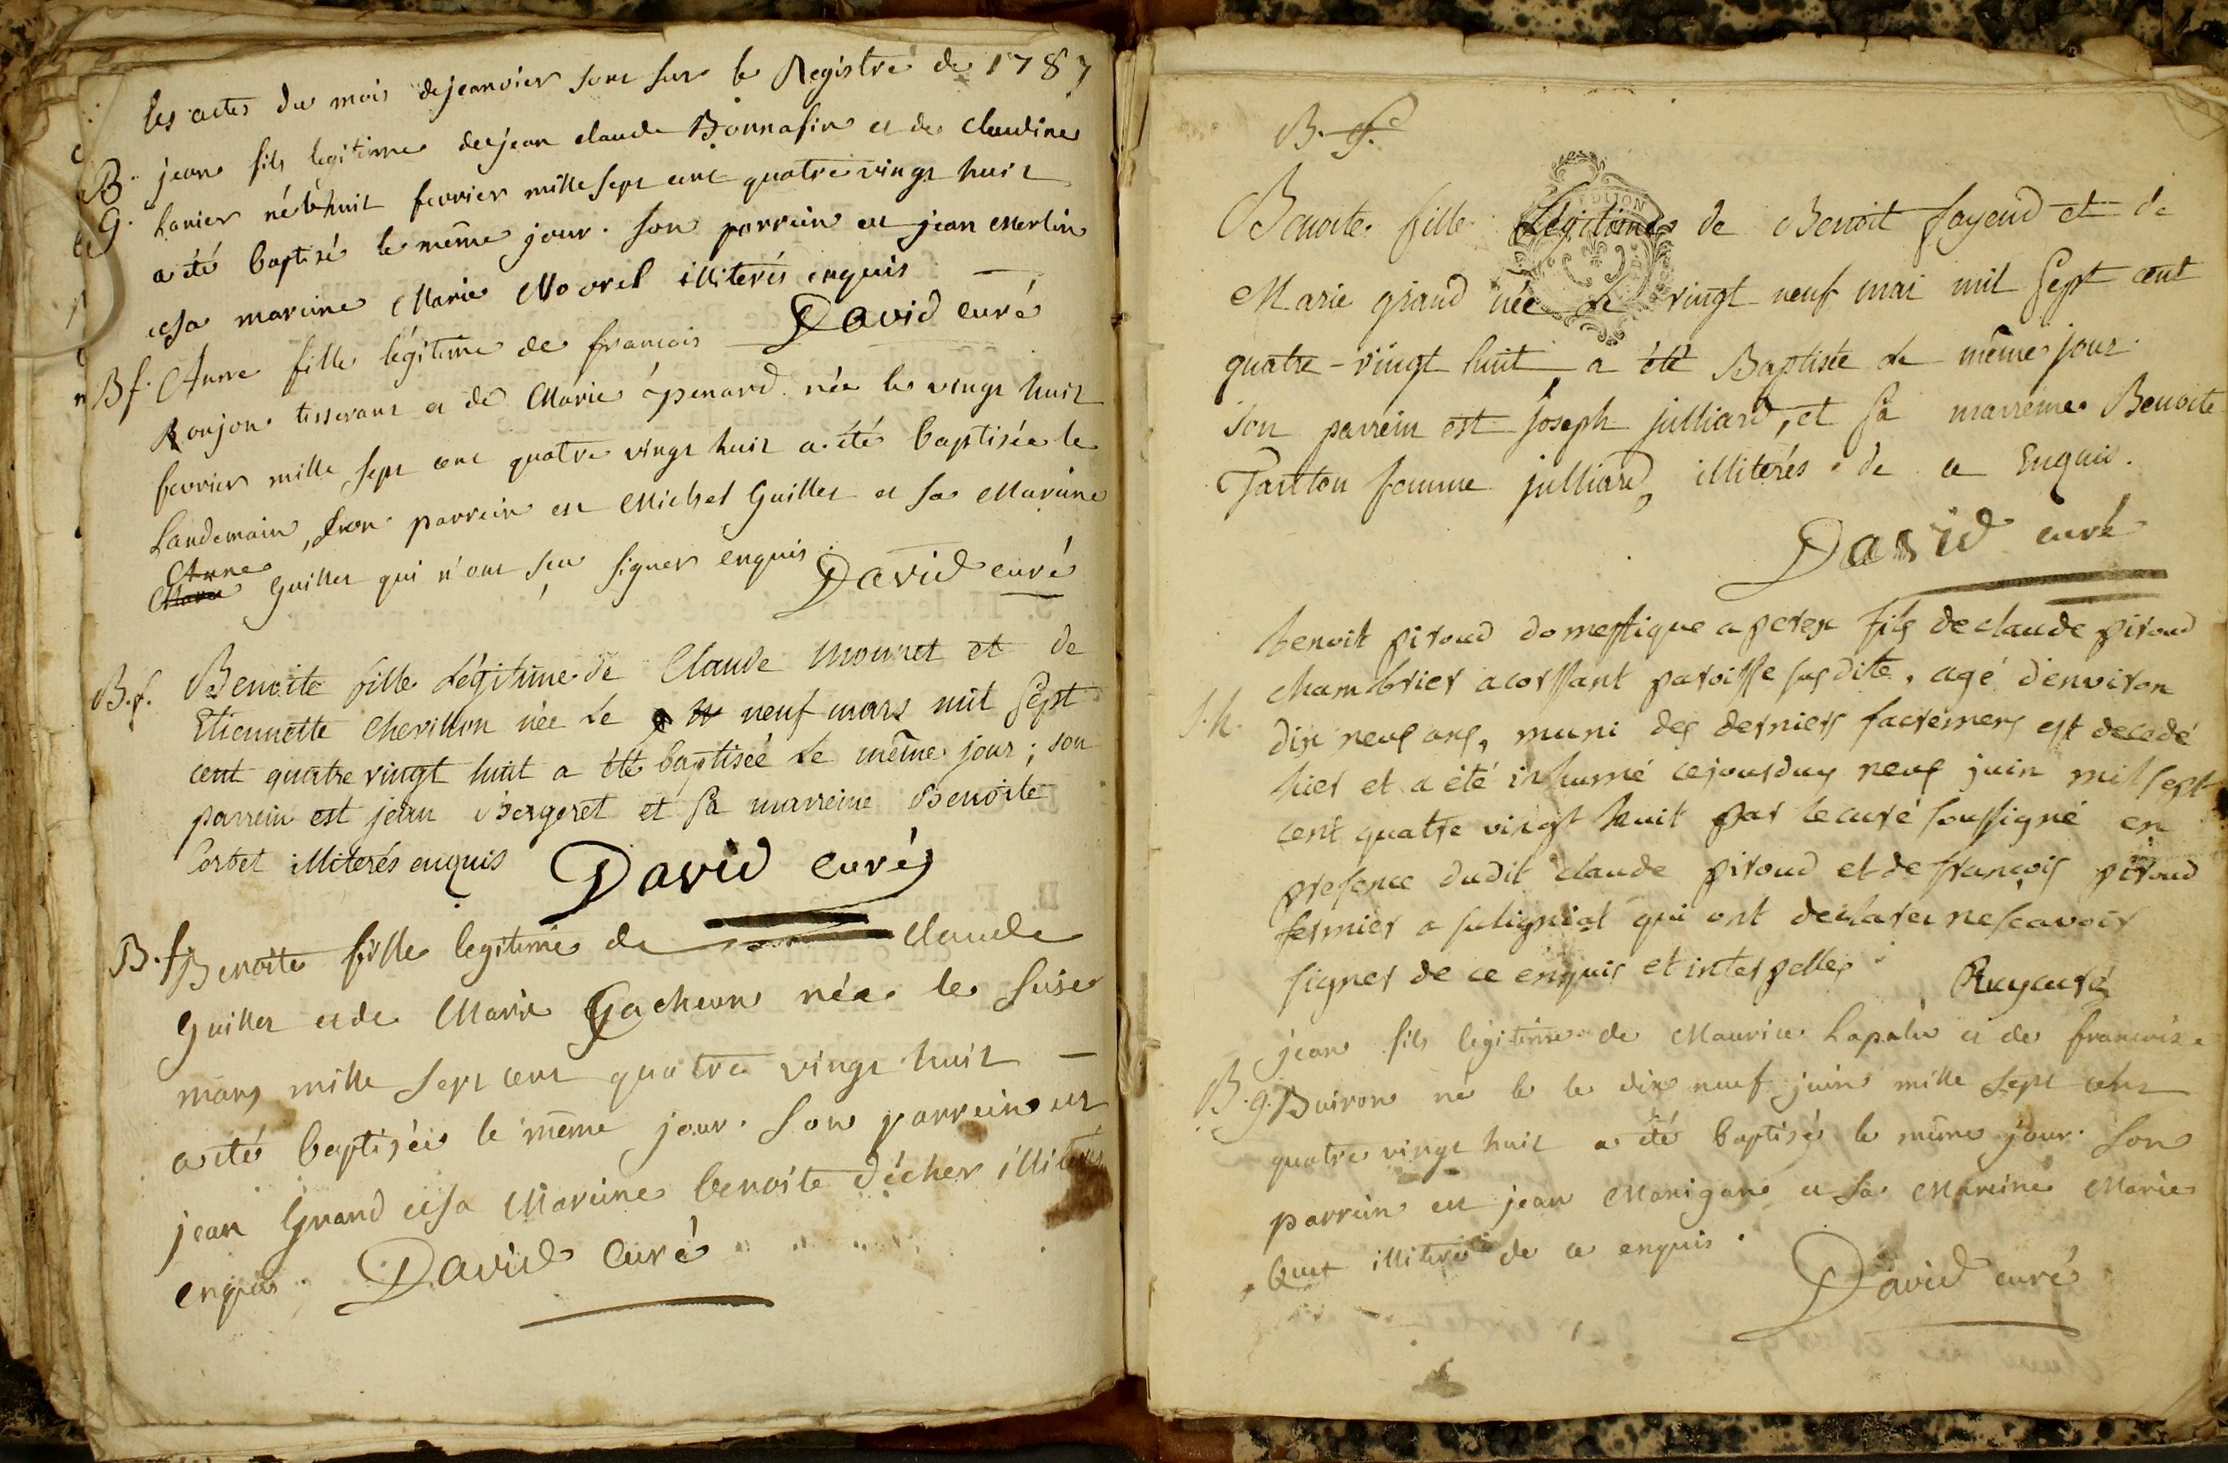 les actes du mois de jeanvier sont sur le Registre de 1787
B. jean fils legitime de jean claude Bonnafin et de claudine
G. Lanier né le huit fevrier mille sept cent quatre vingt huit
a été baptisé le même jour. son parrein est jean Merlin
et sa mareine Marie Mourel illiterés enquis
David curé
Bf. Anne fille légitime de francois
Ronjon tisserant et de Marie épenard née le vingt huit
fevrier mille sept cent quatre vingt huit a été baptisée le
Landemain, son parrein est Michel Guillet et sa Mareine
Anne
Guillet qui n'ont sçu signer enquis.
David curé
B.f. Benoite fille Légitime de Claude Mourret et de
Etiennette Chevillon née Le neuf mars mil sept
cent quatre vingt huit a été baptisée Le même jour ; son
parrein est jean Bergeret et sa marreine Benoite
Corset illiterés enquis David curé
B.f Benoite fille legitime de Claude
Guillet et de Marie Gacheon née le seise
mars mille sept cent quatre vingt huit
a été baptisée le même jour. son parrein est
jean Grand et sa Mareine benoite décher illiterés
enquis. David Curé
B. f.
Benoite fille Légitime de Benoit fayend et de
Marie grand née le vingt neuf mai mil sept cent
quatre-vingt huit, a été Baptisée Le même jour.
son parrein est joseph julliard, et sa marreine Benoite
Panton femme julliard, illiterés de ce Enquis.
David curé
benoit piroud domestique a perex fils de claude piroud
chambrier a corssant paroisse susdite, agé d'environ
dix neuf ans, muni des derniers sacremens est decedé
hier et a été inhumé cejourduy neuf juin mil sept
cent quatre vingt huit par le curé soussigné en
presence dudit claude piroud et de françois piroud
fermier a saligniat qui ont declarer ne scavoir
signer de ce enquis et interpellés
Ruy curé
jean fils legitime de Maurice Lapalu et de francoise
B.g. Buiron né le le dix neuf juin mille sept cent
quatre vingt huit a été baptisé le même jour. son
parrein est jean Manigand et sa Mareine Marie
illiterés de ce enquis.
David curé